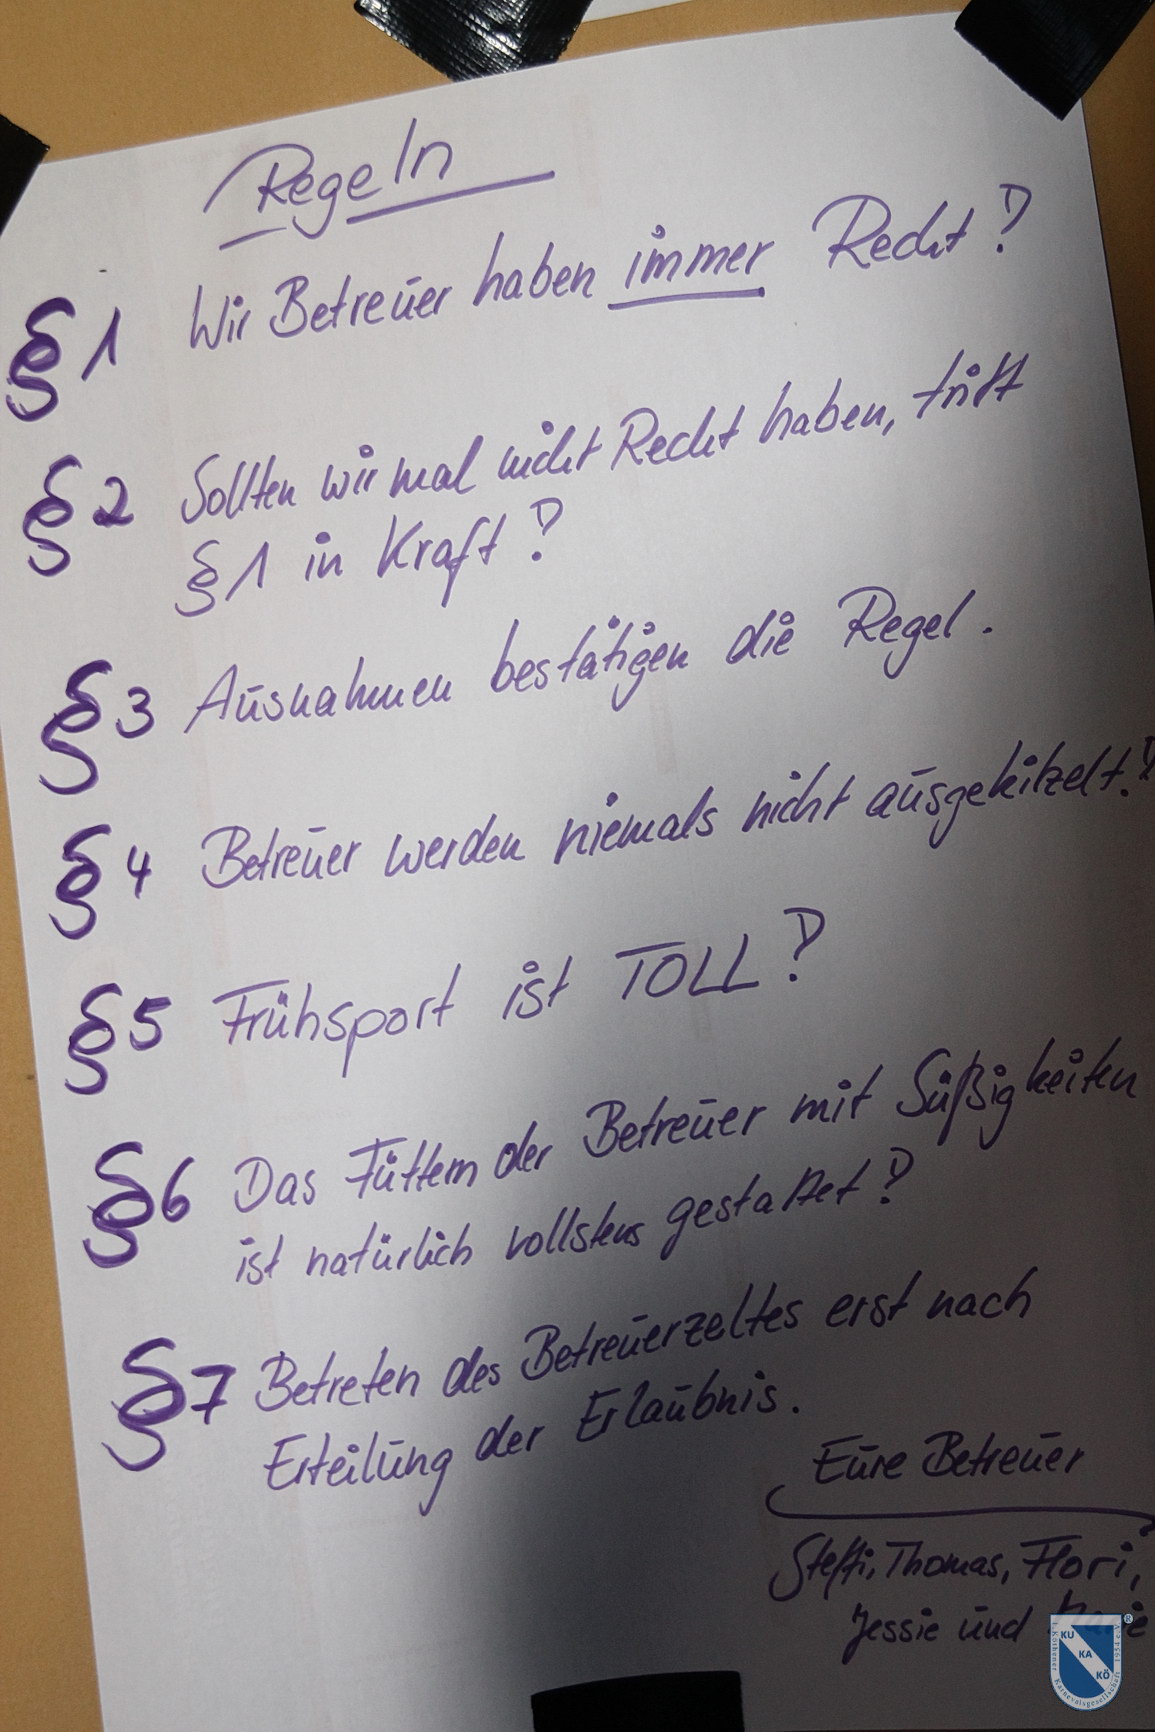 Regeln
§ 1 Wir Betreuer haben immer Recht!
§ 2 Sollten wir mal nicht Recht haben, tritt
§ 1 in Kraft!
§ 3 Ausnahmen bestätigen die Regel.
§ 4 Betreuer werden niemals nicht ausgekitzelt!
§ 5 Frühsport ist TOLL!
§ 6 Das Füttern der Betreuer mit Süßigkeiten
ist natürlich vollstens gestattet!
§ 7 Betreten des Betreuerzeltes erst nach
Erteilung der Erlaubnis.
Eure Betreuer
Steffi, Thomas, Flori,
Jessie und
KU
KA
KÖ
1. Köthener Karnevalsgesellschaft 1954 e.V.